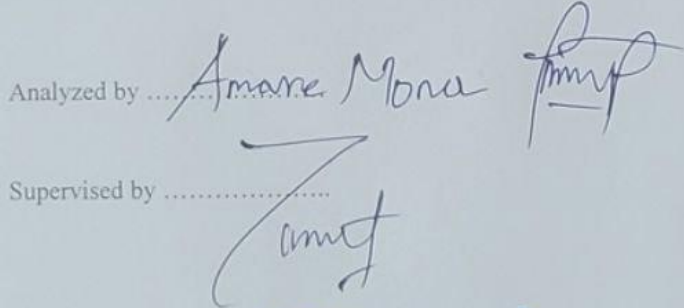 Analyzed by ........... Amare Mona
Supervised by ......................